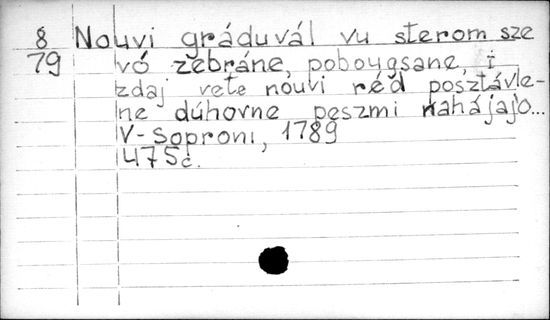 8 Nouvi gráduvál vu sterom sze
79 vó zebráne, pobougsane, i
zdaj vete nouvi réd posztávle-
ne dúhovne peszmi nahájajo...
V-Soproni, 1789
475 c.